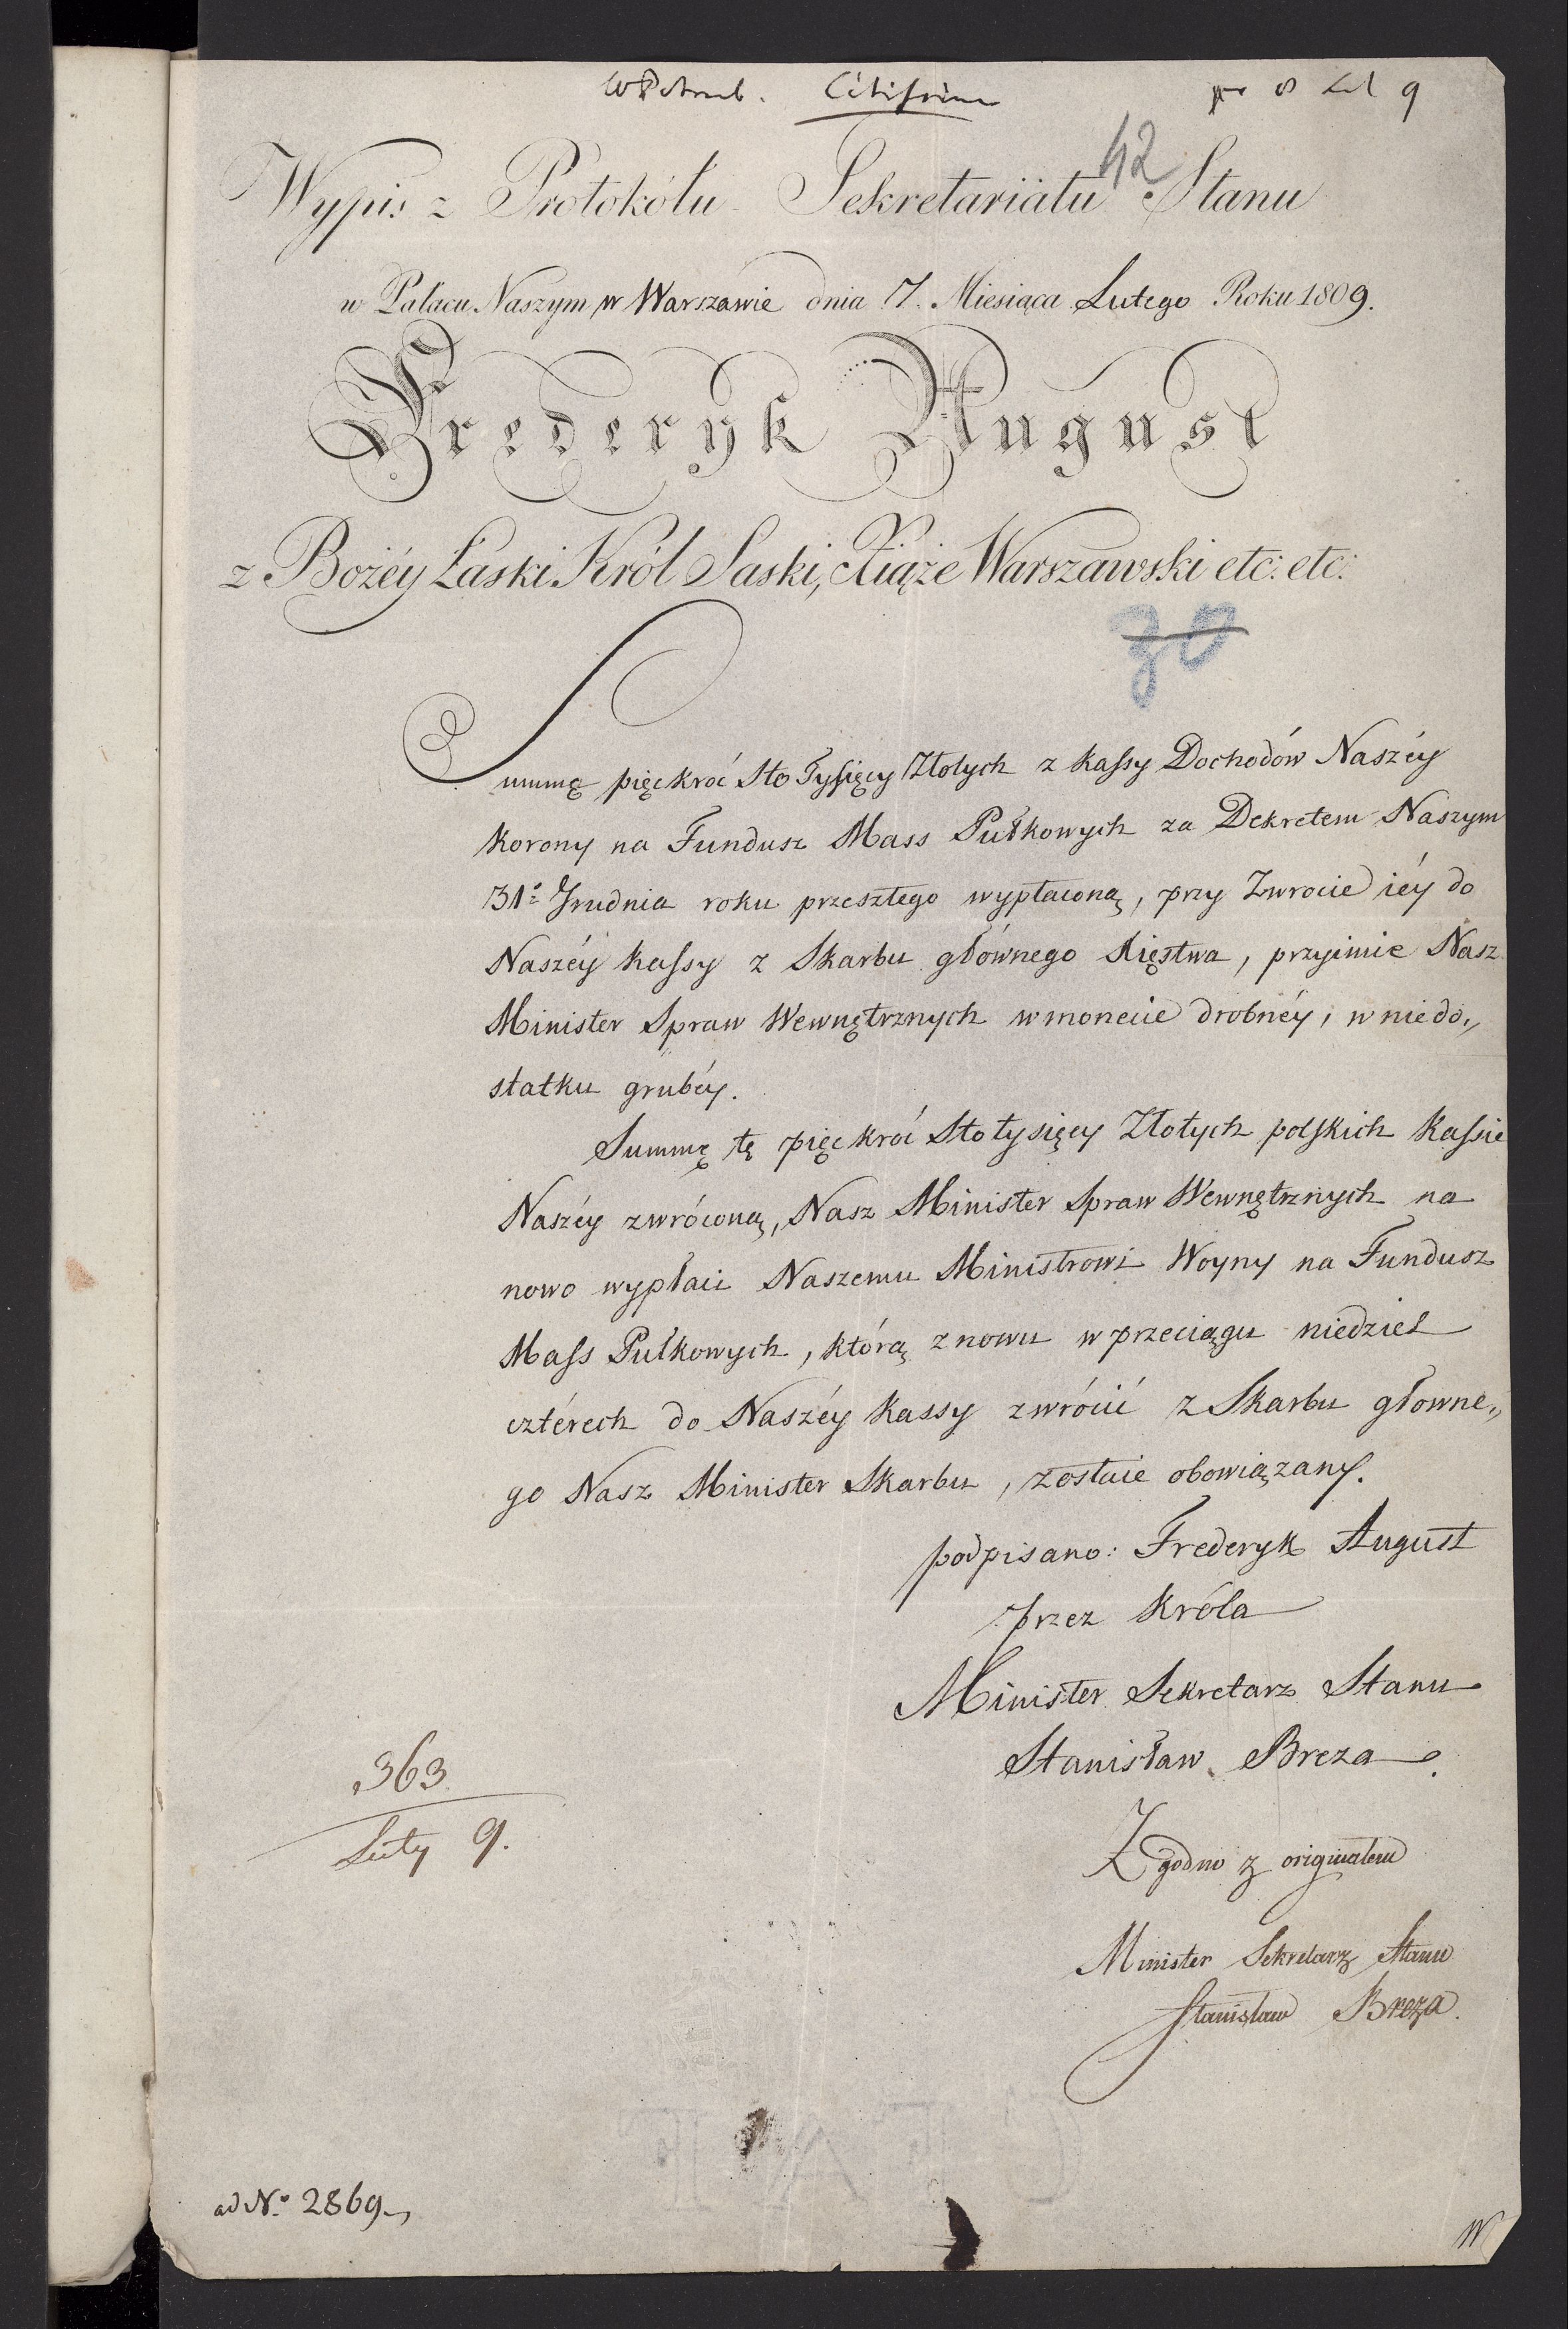 Citissime
9
42
Wypis z Protokółu Sekretariatu Stanu
w Pałacu Naszym w Warszawie dnia 7. Miesiąca Lutego Roku 1809.
Frederyk August
z Bożéy Łaski Król Saski, Xiąże Warszawski etc: etc:
30
Summę pięckroć Sto Tysięcy Złotych z kassy Dochodów Naszéy
Korony na Fundusz Mass Pułkowych za Dekretem Naszym
31º Grudnia roku przeszłego wypłaconą, przy Zwrocie iéy do
Naszéy kassy z Skarbu głównego Xięstwa, przyimie Nasz
Minister Spraw Wewnętrznych w monecie drobnéy, w niedo„
statku grubéy.
Summę tę pięckroć Sto tysięcy Złotych polskich Kassie
Naszéy zwróconą, Nasz Minister Spraw Wewnętrznych na
nowo wypłaci Naszemu Ministrowi Woyny na Fundusz
Mass Pułkowych, którą znowu w przeciągu niedziel
cztérech do Naszéy Kassy zwrócić z Skarbu głowne„
go Nasz Minister Skarbu, zostaie obowiązany.
podpisano: Frederyk August
przez Króla
Minister Sekretarz Stanu
Stanisław Breza.
363
Luty 9.
Zgodno z originałem
Minister Sekretarz Stanu
Stanisław Breza.
ad Nº 2869
W